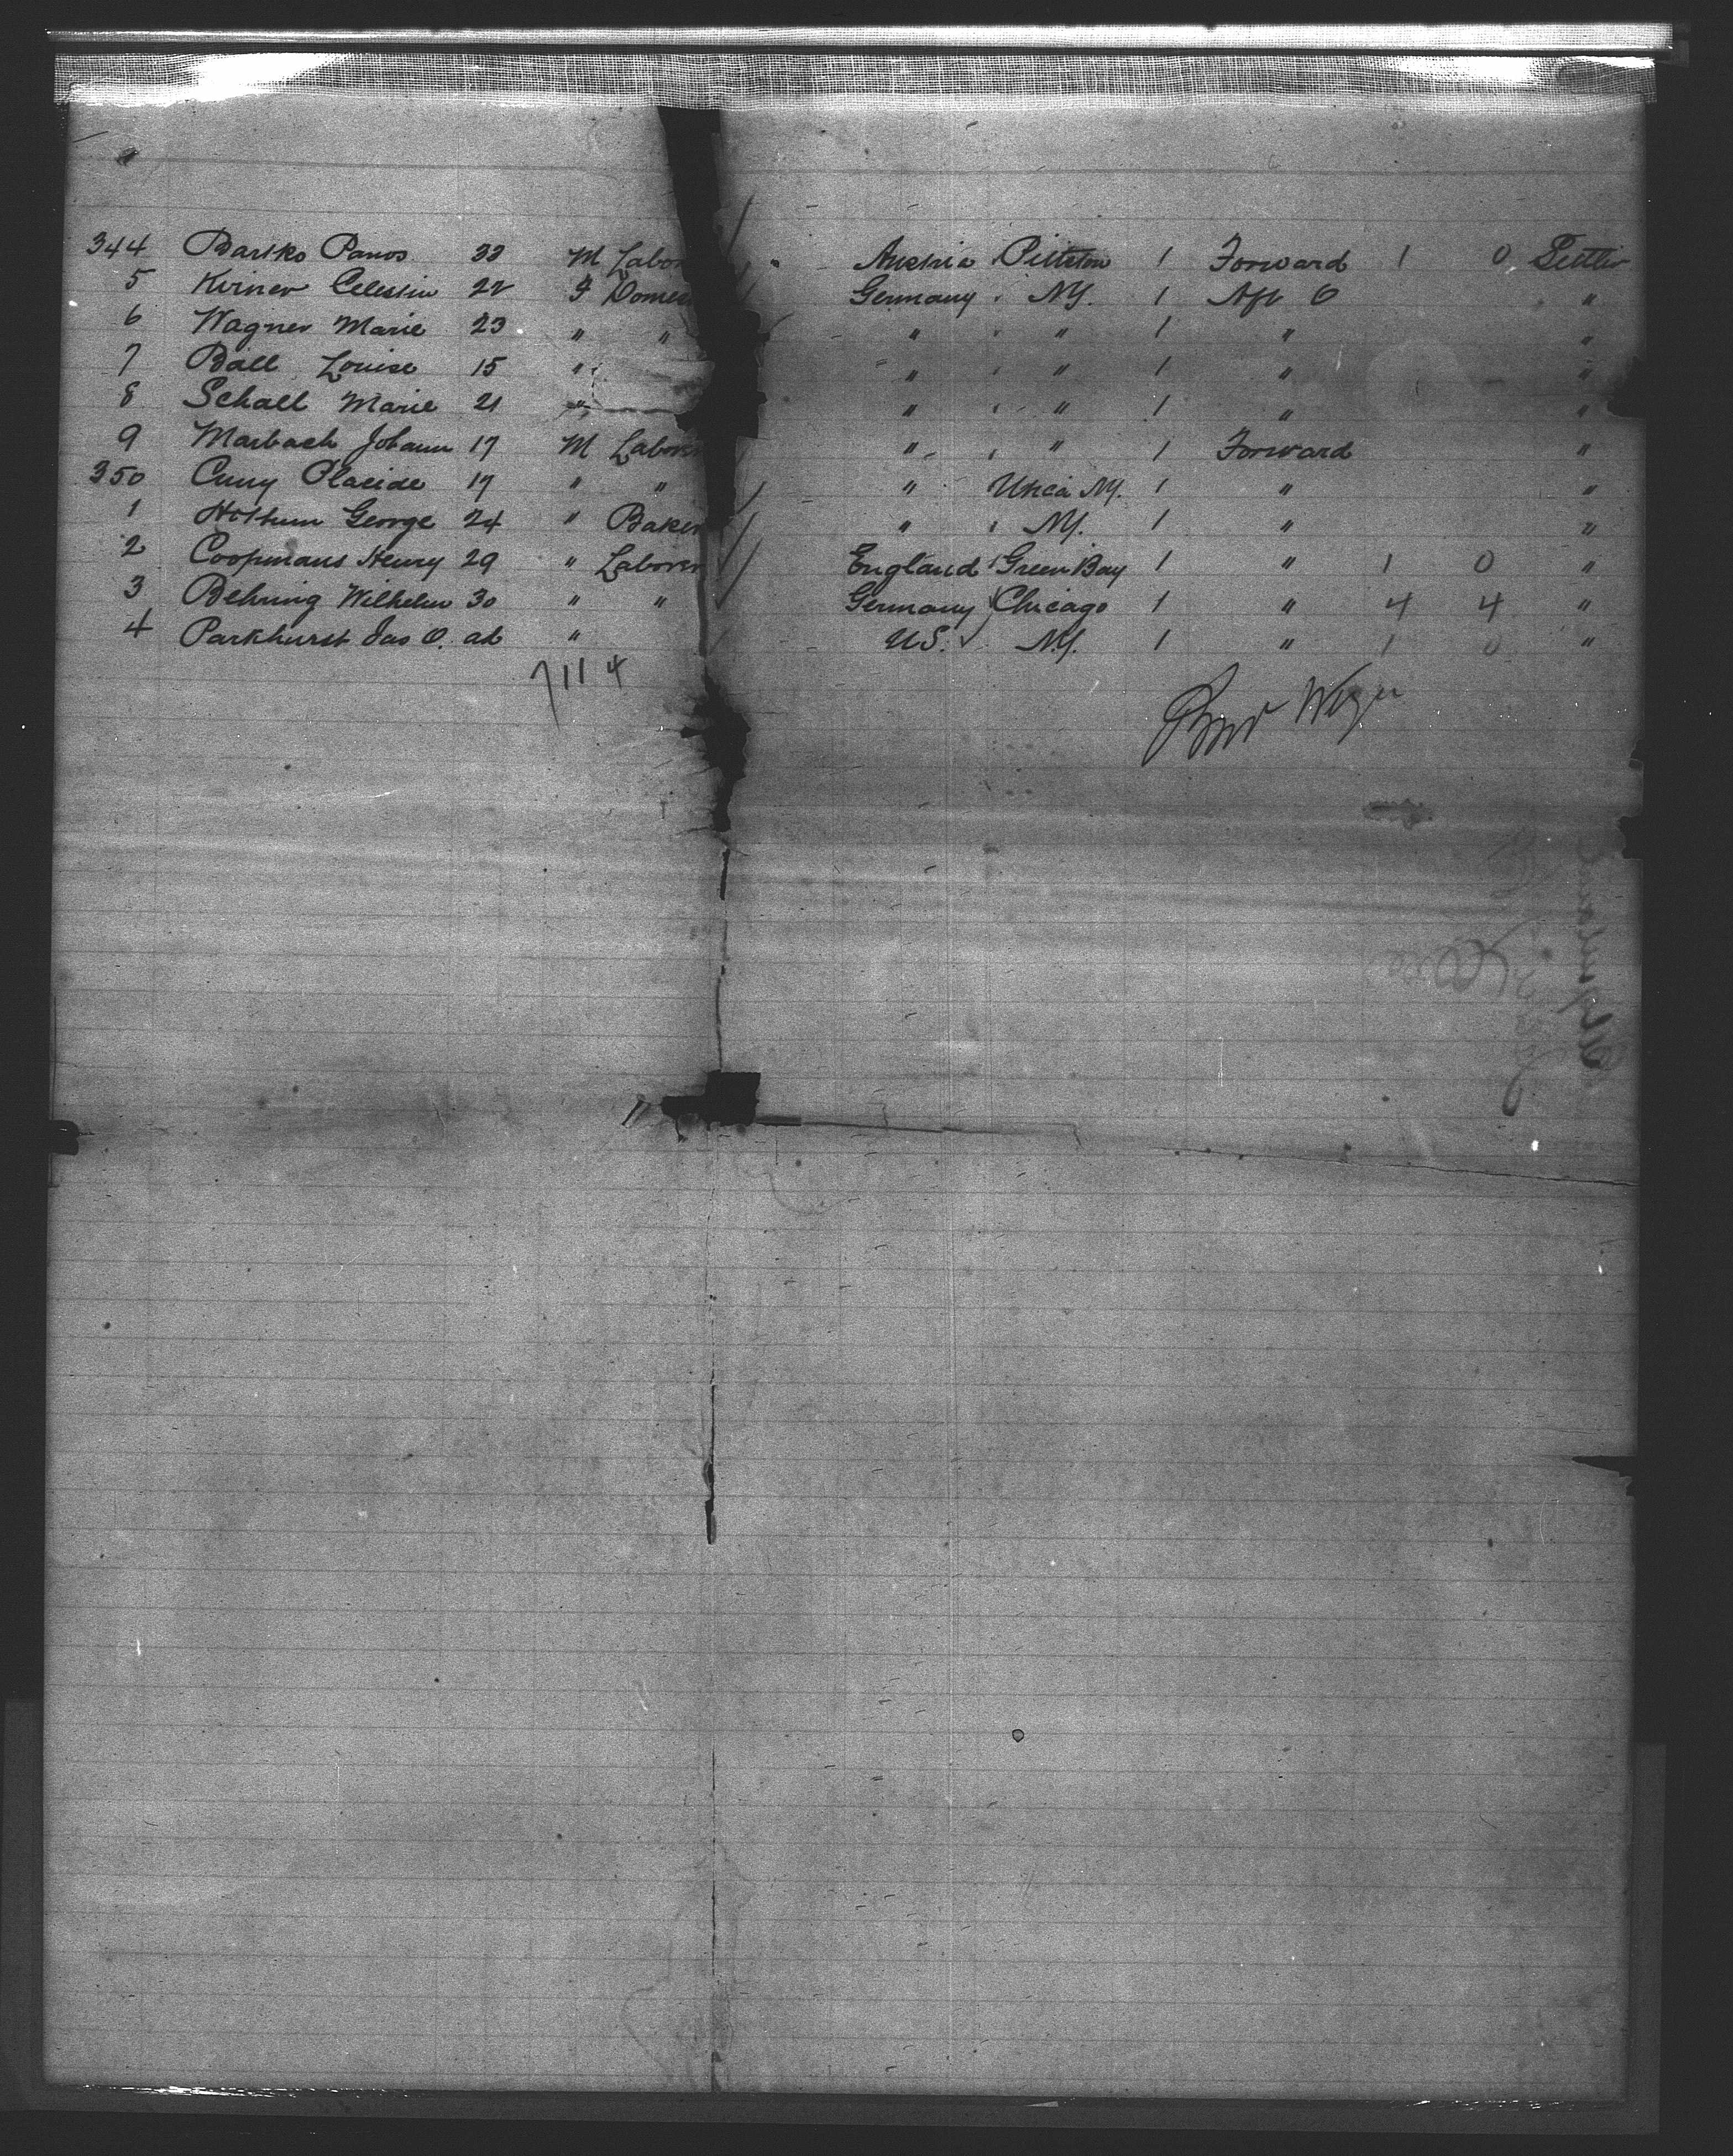 344 Bartko Panos 33 M Labor Austria Pittston 1 Forward 1 0 Settler
5 Kirner Celestin 22 F Domes Germany NY. 1 Aft 6 "
6 Wagner Marie 23 " " " " 1 " "
7 Ball Louise 15 " " " 1 " "
8 Schall Marie 21 " " " 1 " "
9 Marbach Johann 17 M Labor " " 1 Forward "
350 Cuny Placide 17 " " " Utica NY. 1 " "
1 George 24 " Baker " NY. 1 " "
2 Coopmans Henry 29 " Laborer England Green Bay 1 " 1 0 "
3 Behring Wilhelm 30 " " Germany Chicago 1 " 4 4 "
4 Parkhurst Jas O. ad " U.S. N.Y. 1 " 1 0 "
7114